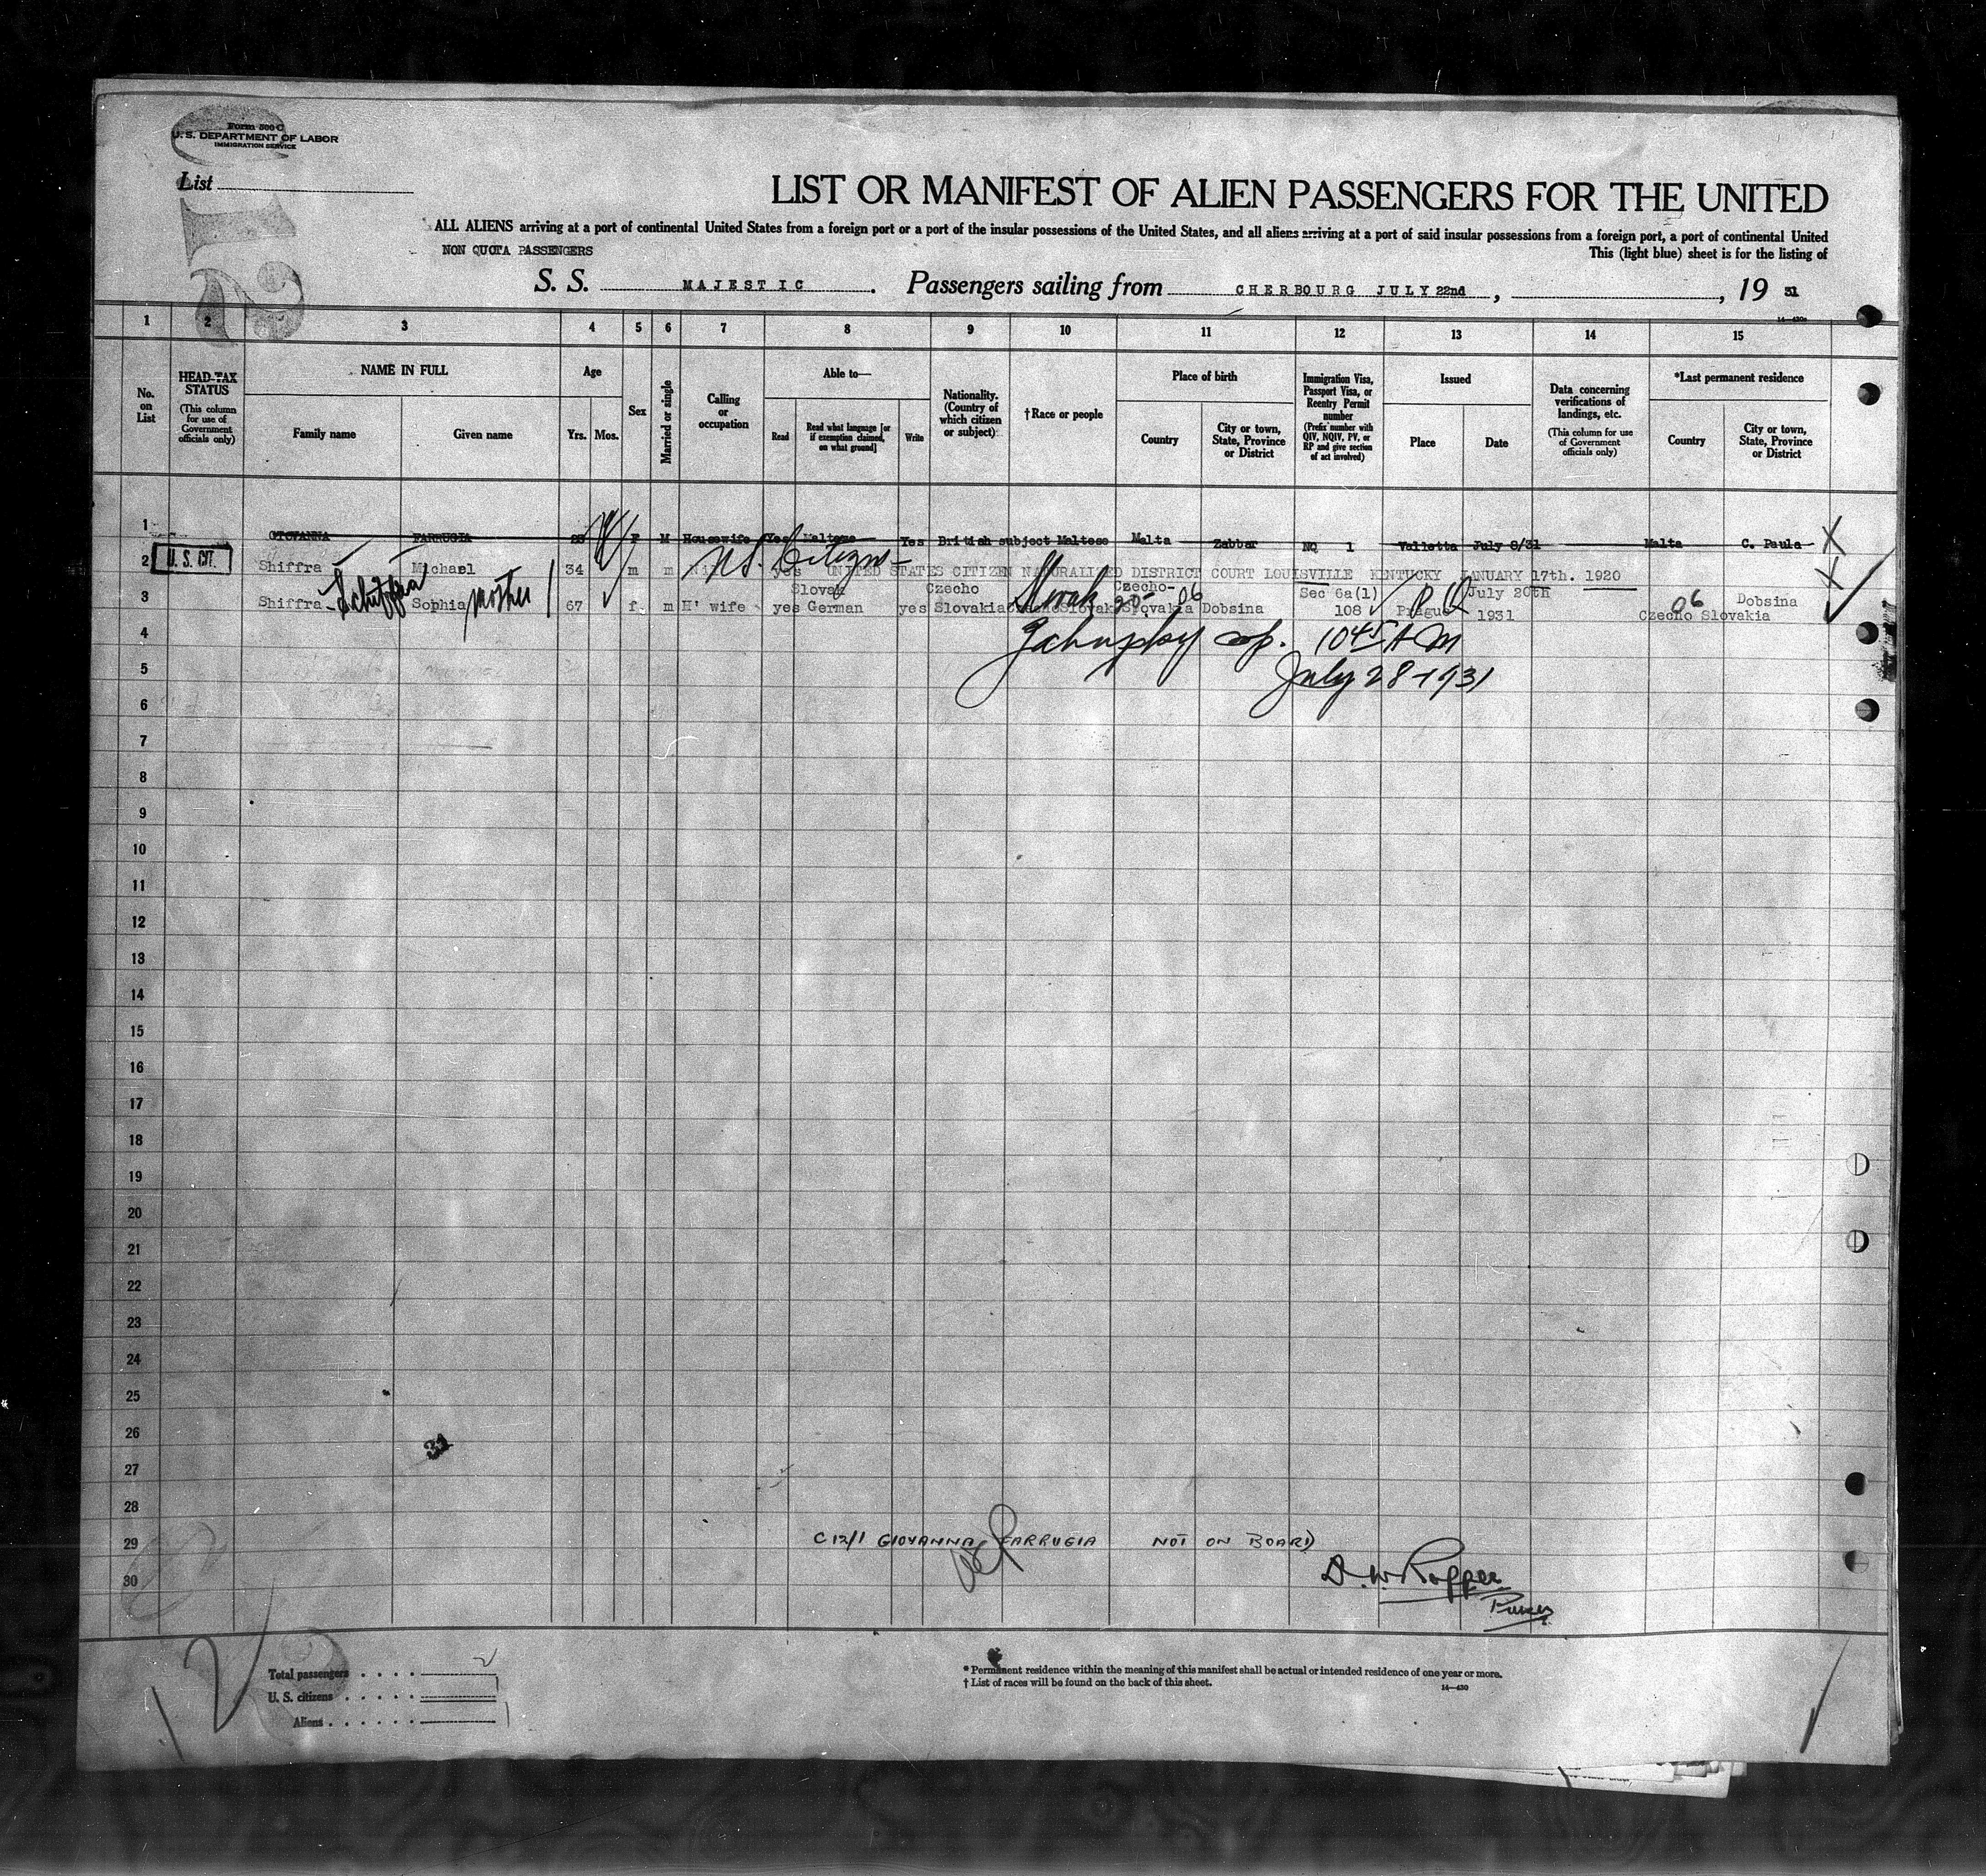 Form 500 C
U. S. DEPARTMENT OF LABOR
IMMIGRATION SERVICE
List
12
LIST OR MANIFEST OF ALIEN PASSENGERS FOR THE UNITED
ALL ALIENS arriving at a port of continental United States from a foreign port or a port of the insular possessions of the United States, and all aliens arriving at a port of said insular possessions from a foreign port, a port of continental United
NON QUOTA PASSENGERS
This (light blue) sheet is for the listing of
S. S. MAJESTIC. Passengers sailing from CHERBOURG JULY 22nd, , 19 31
1 2 3 4 5 6 7 8 9 10 11 12 13 14 15
No. on List
HEAD-TAX STATUS (This column for use of Government officials only)
NAME IN FULL
Family name Given name
Age
Yrs. Mos.
Sex
Married or single
Calling or occupation
Able to—
Read
Read what language [or if exemption claimed, on what ground]
Write
Nationality. (Country of which citizen or subject)
†Race or people
Place of birth
Country City or town, State, Province or District
Immigration Visa, Passport Visa, or Reentry Permit number (Prefix number with QIV, NQIV, PV, or RP and give section of act involved)
Issued
Place Date
Data concerning verifications of landings, etc. (This column for use of Government officials only)
*Last permanent residence
Country City or town, State, Province or District
1 GIOVANNA FARRUGIA F M Housewife Yes Maltese Yes British subject Maltese Malta Zabbar NQ 1 Valletta July 8/31 Malta C. Paula X
2 U. S. CIT. Shiffra Michael 34 m m yes UNITED STATES CITIZEN NATURALIZED DISTRICT COURT LOUISVILLE KENTUCKY JANUARY 17th. 1920 X
U.S. Citizen
3 Shiffra Sophia mother 67 f m H' wife yes Slovak German yes Czecho Slovakia Slovak Czecho-Slovakia Dobsina Sec 6a(1) 108 Prague July 20th 1931 06 Czecho Slovakia Dobsina
4 1045 A M
5 July 28-1931
6
7
8
9
10
11
12
13
14
15
16
17
18
19
20
21
22
23
24
25
26
27
28
29 C 12/1 GIOVANNA FARRUGIA NOT ON BOARD
30
Purser
12
Total passengers . . . . 2
U. S. citizens . . . . . 1
Aliens . . . . . . 1
* Permanent residence within the meaning of this manifest shall be actual or intended residence of one year or more.
† List of races will be found on the back of this sheet.
14—430